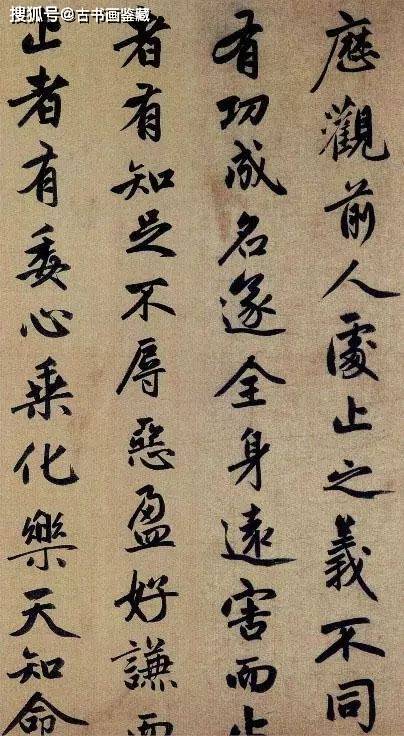 搜狐号@古书画鉴藏
歷觀前人處止之義不同
有功成名遂全身遠害而止
者有知足不辱惡盈好謙而
止者有委心乘化樂天知命